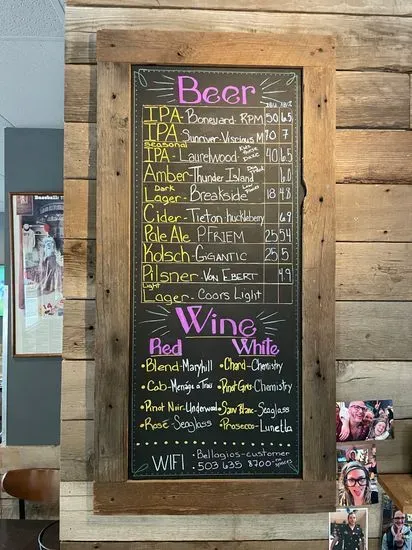 Beer
IBU ABV
IPA - Boneyard RPM 50 6.5
IPA Sunriver - Vicious M 70 7
SEASONAL
IPA - Laurelwood 40 6.5
Amber - Thunder Island 6.0
Dark
Lager - Breakside 18 4.8
Cider - Tieton huckleberry 6.9
Pale Ale P.FRIEM 25 5.4
Kolsch - GIGANTIC 25 5
Pilsner - VON EBERT 4.9
Light
Lager - Coors Light
Wine
Red White
• Blend - Maryhill • Chard - Chemistry
• Cab - Menage a Trois • Pinot Gris - Chemistry
• Pinot Noir - Underwood • Sauv Blanc - Seaglass
• Rosé - Seaglass • Prosecco - Lunetta
WIFI : Bellagios-customer
503 635 8700 - no spaces
Baseball